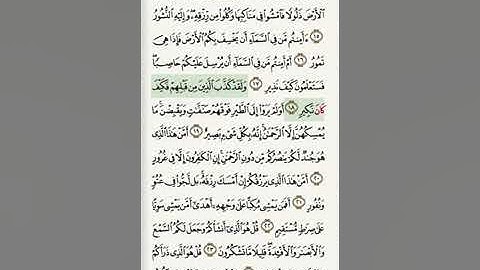 ٱلۡأَرۡضَ ذَلُولٗا فَٱمۡشُواْ فِي مَنَاكِبِهَا وَكُلُواْ مِن رِّزۡقِهِۦۖ وَإِلَيۡهِ ٱلنُّشُورُ
١٥ ءَأَمِنتُم مَّن فِي ٱلسَّمَآءِ أَن يَخۡسِفَ بِكُمُ ٱلۡأَرۡضَ فَإِذَا هِيَ
تَمُورُ ١٦ أَمۡ أَمِنتُم مَّن فِي ٱلسَّمَآءِ أَن يُرۡسِلَ عَلَيۡكُمۡ حَاصِبٗاۖ
فَسَتَعۡلَمُونَ كَيۡفَ نَذِيرِ ١٧ وَلَقَدۡ كَذَّبَ ٱلَّذِينَ مِن قَبۡلِهِمۡ فَكَيۡفَ
كَانَ نَكِيرِ ١٨ أَوَلَمۡ يَرَوۡاْ إِلَى ٱلطَّيۡرِ فَوۡقَهُمۡ صَٰٓفَّٰتٖ وَيَقۡبِضۡنَۚ مَا
يُمۡسِكُهُنَّ إِلَّا ٱلرَّحۡمَٰنُۚ إِنَّهُۥ بِكُلِّ شَيۡءِۭ بَصِيرٌ ١٩ أَمَّنۡ هَٰذَا ٱلَّذِي
هُوَ جُندٞ لَّكُمۡ يَنصُرُكُم مِّن دُونِ ٱلرَّحۡمَٰنِۚ إِنِ ٱلۡكَٰفِرُونَ إِلَّا فِي غُرُورٍ
٢٠ أَمَّنۡ هَٰذَا ٱلَّذِي يَرۡزُقُكُمۡ إِنۡ أَمۡسَكَ رِزۡقَهُۥۚ بَل لَّجُّواْ فِي عُتُوّٖ
وَنُفُورٍ ٢١ أَفَمَن يَمۡشِي مُكِبًّا عَلَىٰ وَجۡهِهِۦٓ أَهۡدَىٰٓ أَمَّن يَمۡشِي سَوِيًّا
عَلَىٰ صِرَٰطٖ مُّسۡتَقِيمٖ ٢٢ قُلۡ هُوَ ٱلَّذِيٓ أَنشَأَكُمۡ وَجَعَلَ لَكُمُ ٱلسَّمۡعَ
وَٱلۡأَبۡصَٰرَ وَٱلۡأَفۡـِٔدَةَۚ قَلِيلٗا مَّا تَشۡكُرُونَ ٢٣ قُلۡ هُوَ ٱلَّذِي ذَرَأَكُمۡ